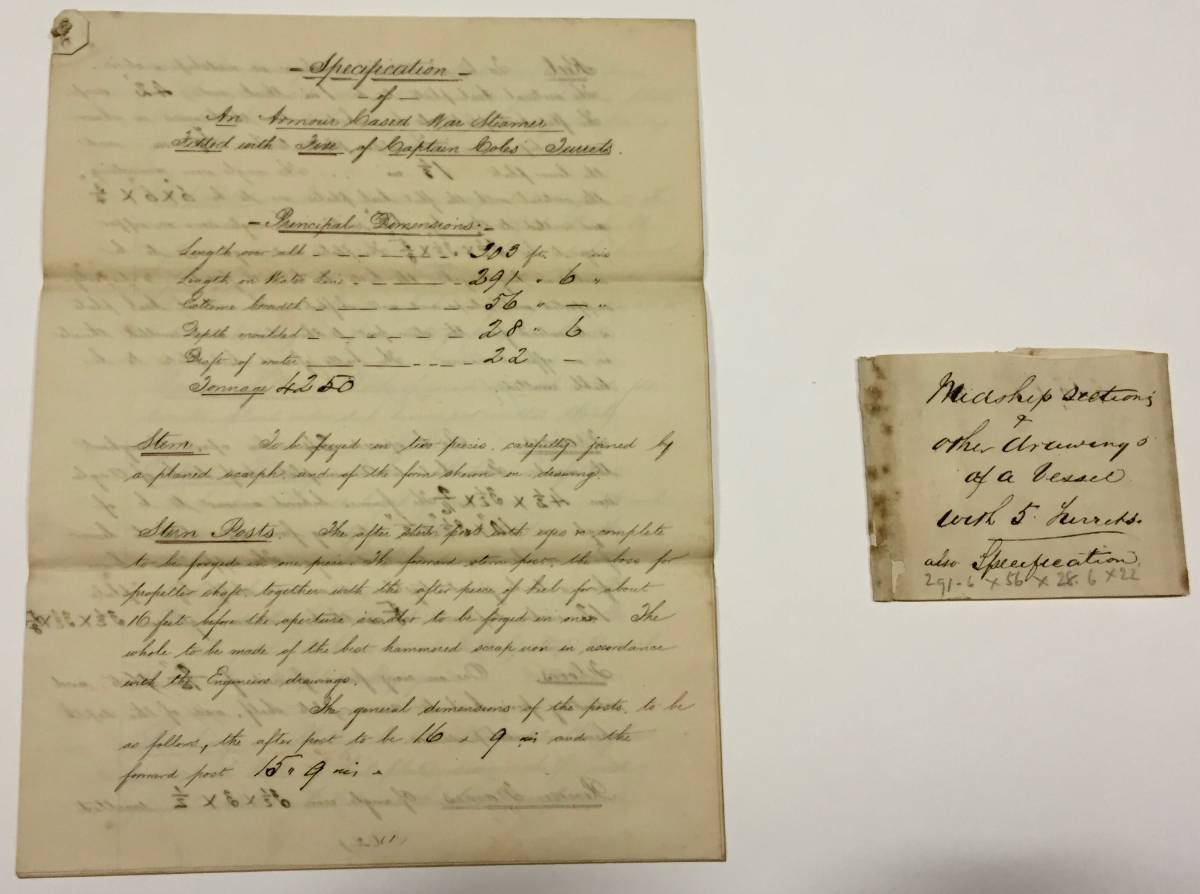 - Specification -
- of -
An Armour Cased War Steamer
Fitted with Five of Captain Coles Turrets.
- Principal Dimensions. -
Length over all - - - - - 303 ft. - ins
Length on Water Line - - - - - 291 " 6 "
Extreme breadth - - - - - - 56 " - "
Depth moulded - - - - - - 28 " 6
Draft of water - - - - 22 -
Tonnage 4250
Stem. To be forged in two pieces, carefully joined by
a planed scarph, and of the form shewn in drawing.
Stern Posts The after stern post with eyes complete
to be forged in one piece. The forward stern post, the boss for
propeller shaft together with the after piece of keel for about
16 feet before the aperture is also to be forged in one. The
whole to be made of the best hammered scrap iron in accordance
with the Engineers drawings.
The general dimensions of the posts, to be
as follows, the after post to be 16 x 9 ins and the
forward post 15 " 9 ins.
Midship sections
&
other drawings
of a Vessel
with 5 Turrets.
also Specification
291-6 x 56 x 28.6 x 22